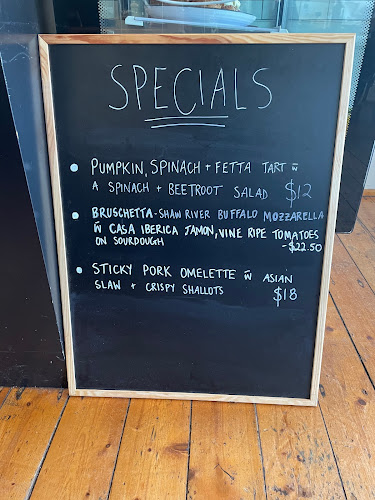 SPECIALS
• PUMPKIN, SPINACH + FETTA TART w̄
A SPINACH + BEETROOT SALAD $12
• BRUSCHETTA - SHAW RIVER BUFFALO MOZZARELLA
w̄ CASA IBERICA JAMON, VINE RIPE TOMATOES
ON SOURDOUGH -$22.50
• STICKY PORK OMELETTE w̄ ASIAN
SLAW + CRISPY SHALLOTS $18